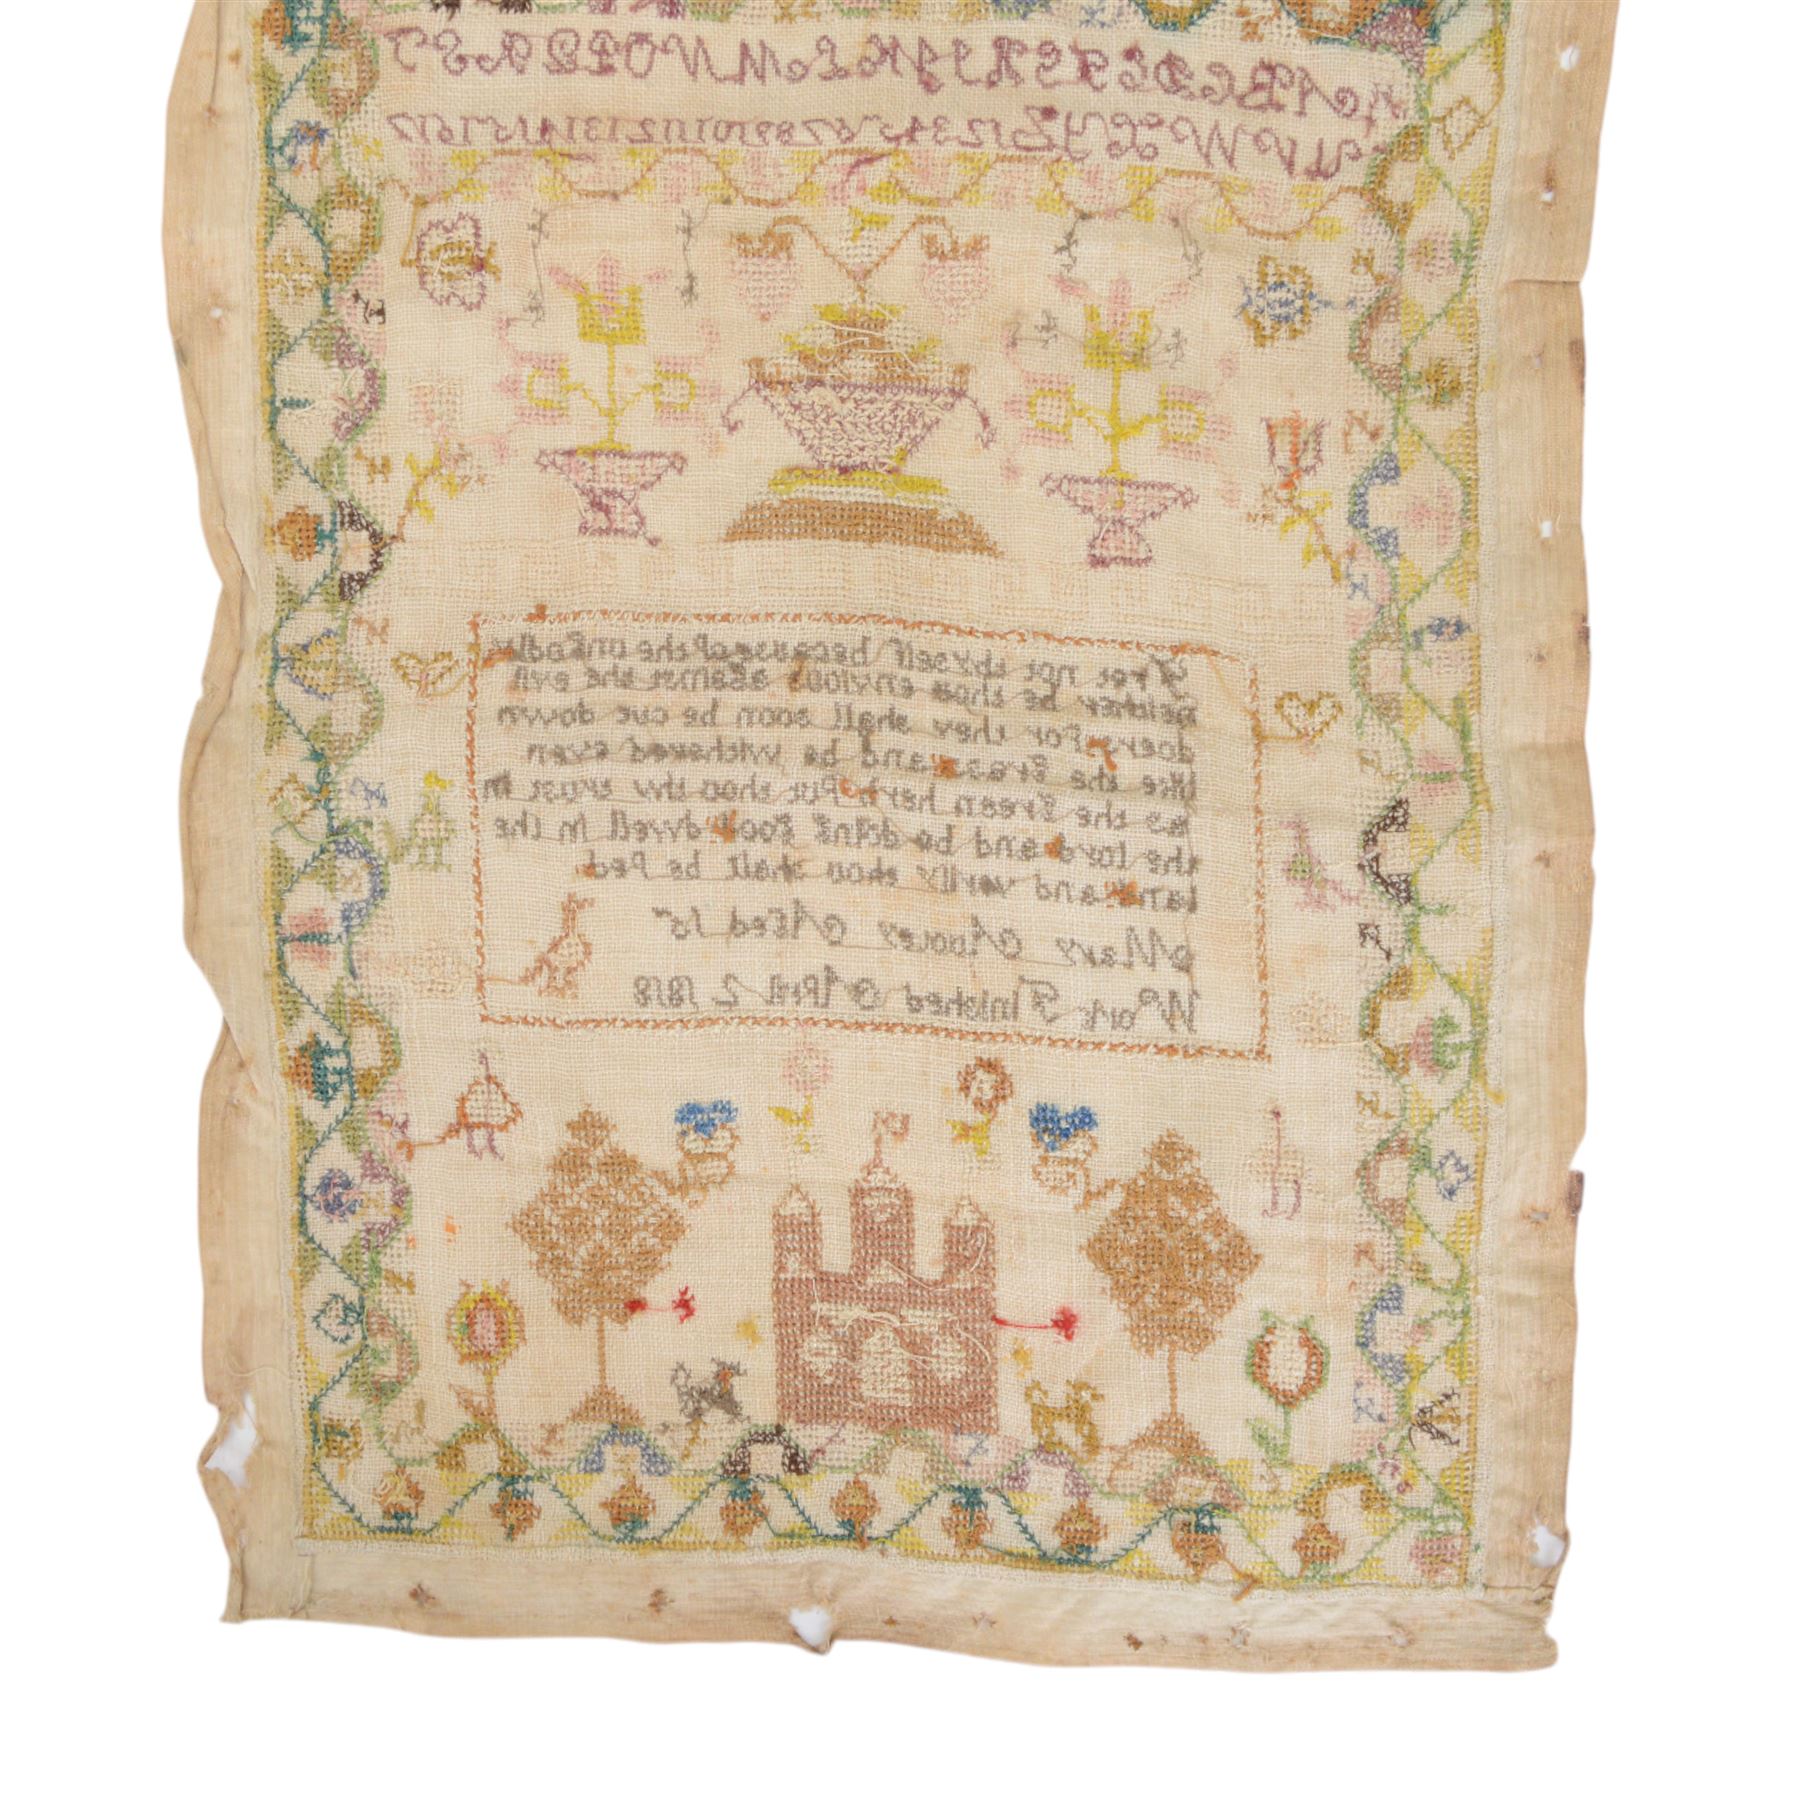 A B C D E F G H I J K L M N O P Q R S T
U V W X Y Z 1 2 3 4 5 6 7 8 9 10 11 12 13 14 15 16 17
Fret not thyself because of the ungodly
neither be thou envious against the evil
doers For they shall soon be cut down
like the grass and be withered even
as the green herb Put thou thy trust in
the lord and be doing good dwell in the
land and verily thou shalt be fed
Mary Aged 15
Work Finished April 2 1818